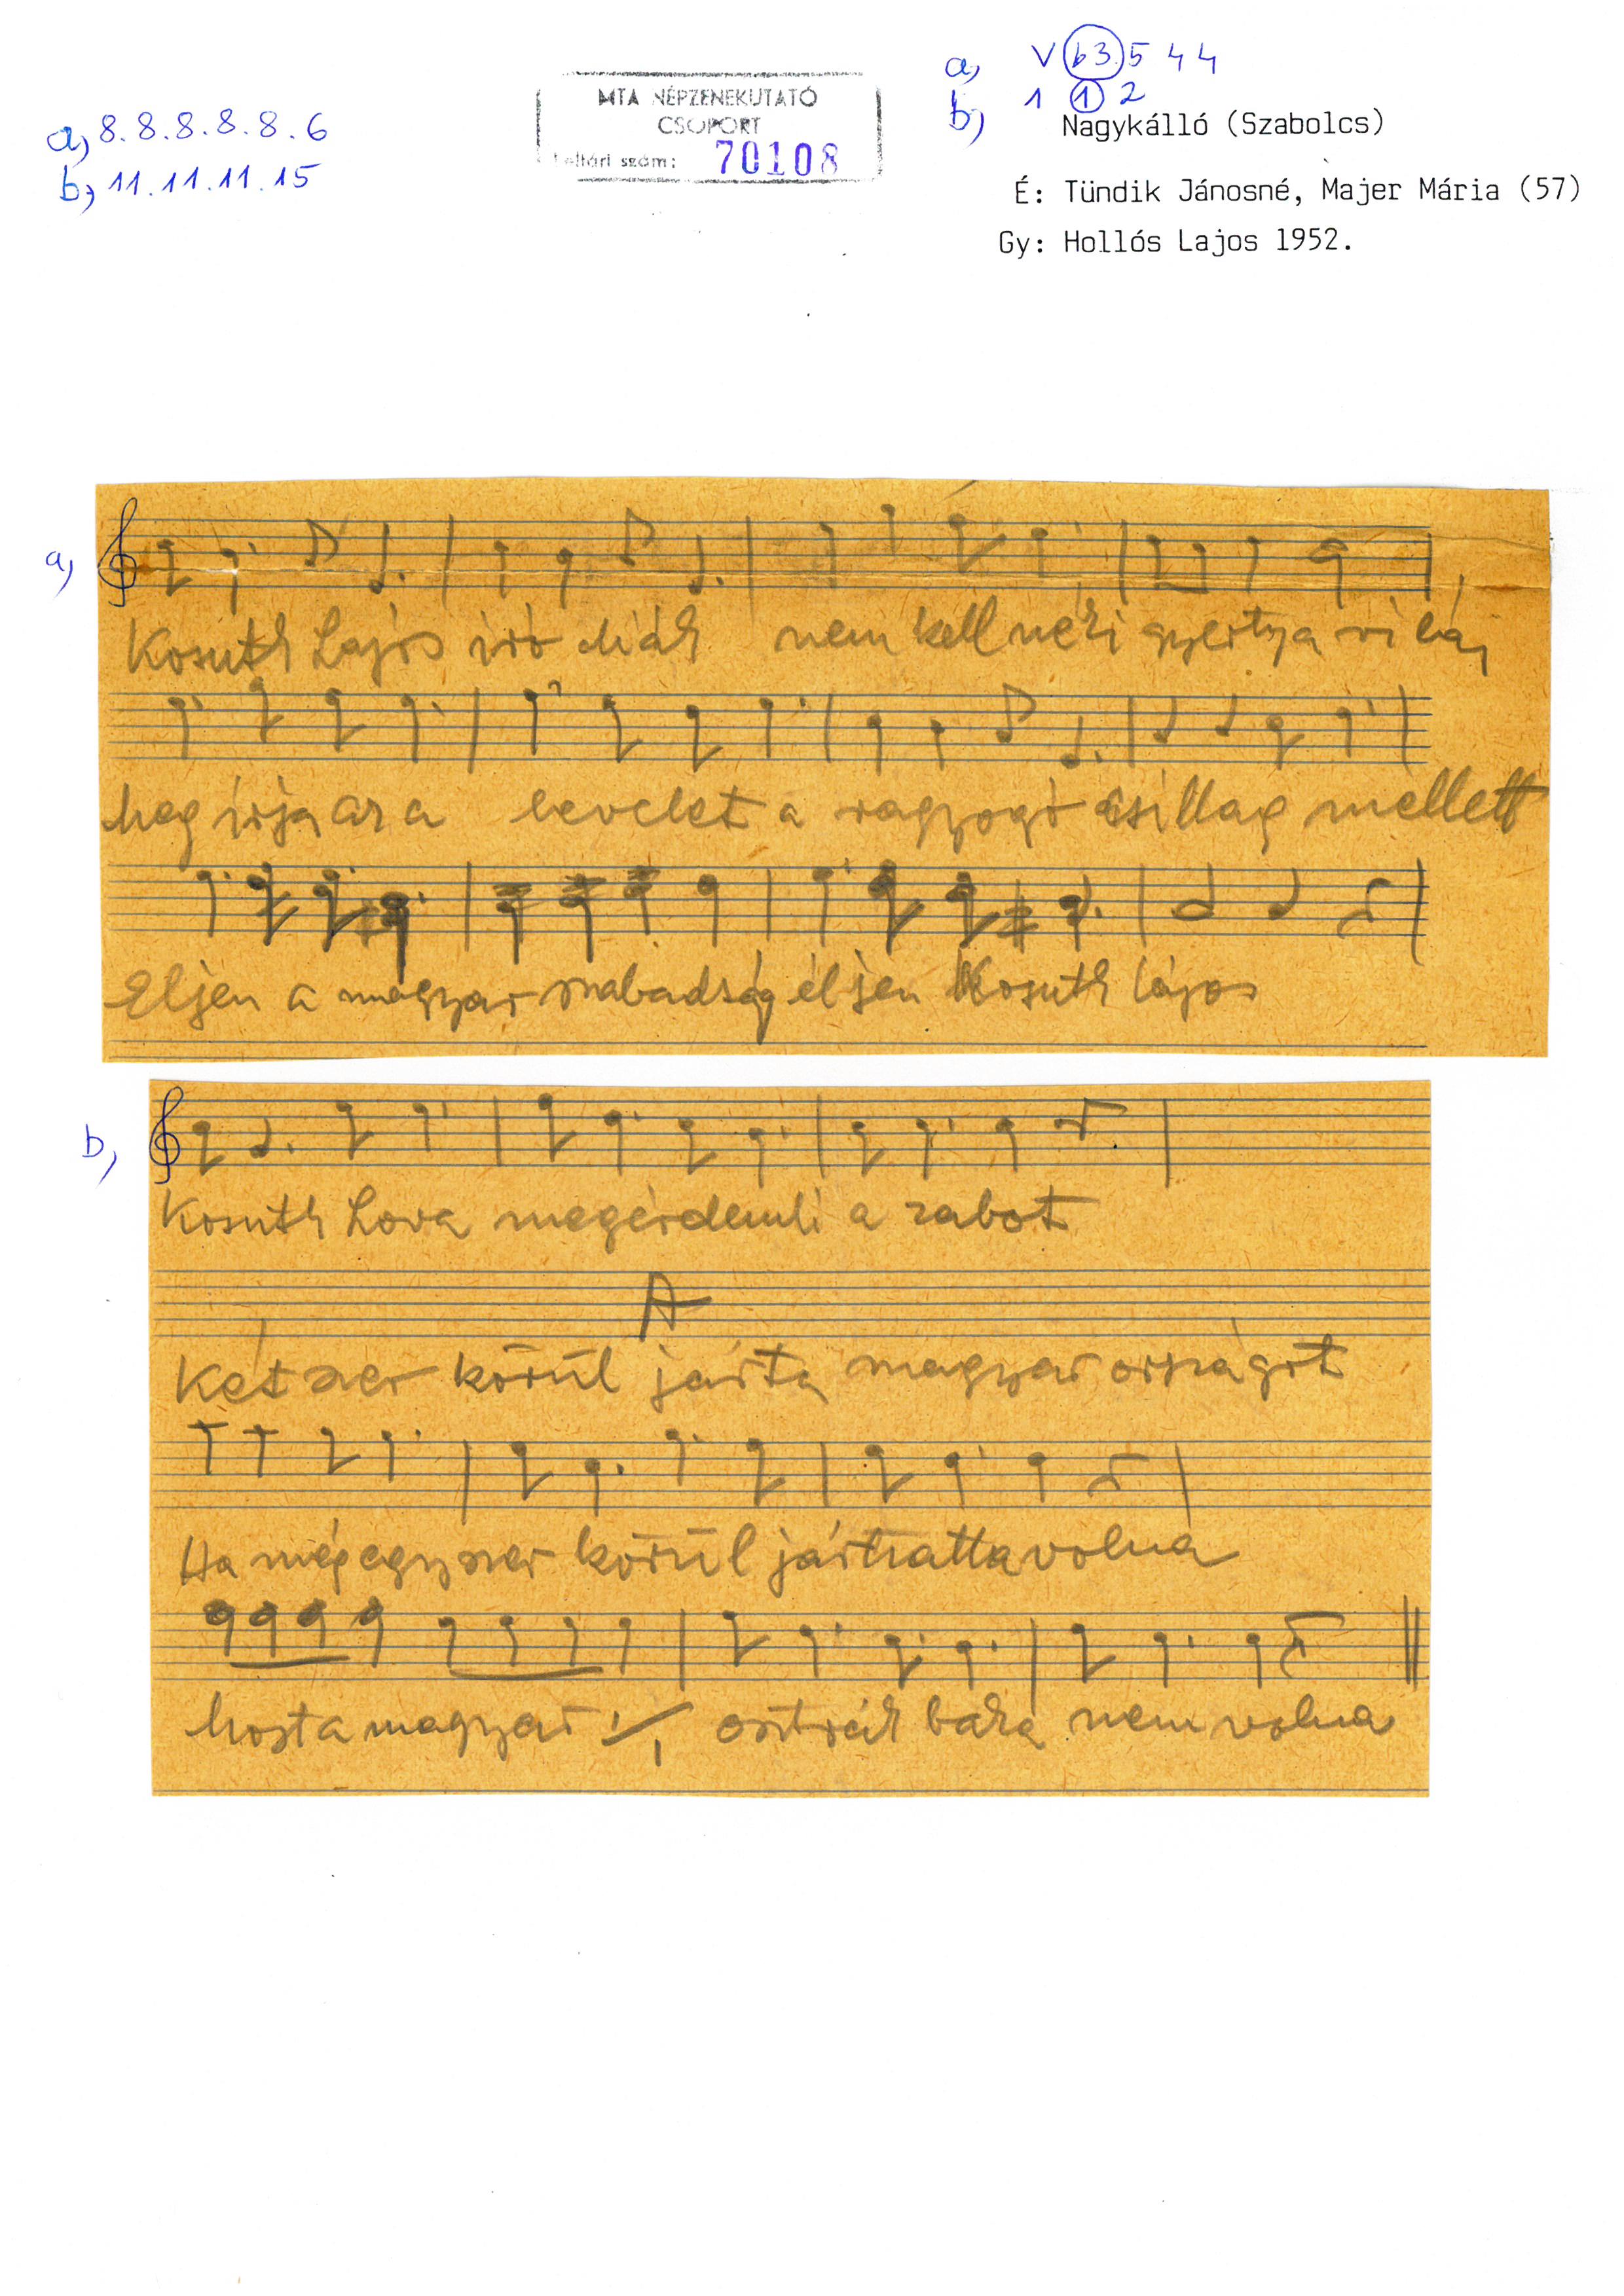 a, V b3 5 4 4
b) 1 1 2
a, 8.8.8.8.8.6
b, 11.11.11.15
MTA NÉPZENEKUTATÓ
CSOPORT
Leltári szám: 70108
Nagykálló (Szabolcs)
É: Tündik Jánosné, Majer Mária (57)
Gy: Hollós Lajos 1952.
a,
Kosuth Lajos iró diák nem kell neki gyertya világ
Meg irja az a levelet a ragyogó csillag mellett
Eljen a magyar szabadság éljen Kosuth Lajos
b,
Kosuth Lova megérdemli a zabot
A
Kétszer körül járta magyarországot
Ha mégegyszer körül járhatta volna
Mosta magyar osztrák baka nem volna